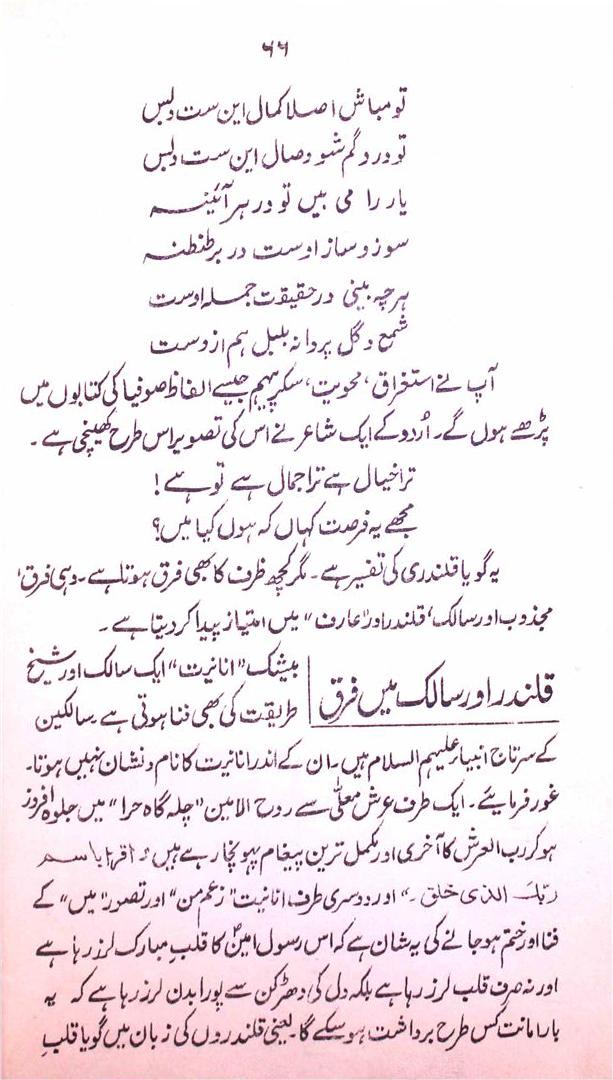 ۶۶
تو مباش اصلا کمال این ست وبس
تو درو گم شو وصال این ست وبس
یار را می بیں تو در ہر آئینہ
سوز و ساز اوست در ہر طنطنہ
ہرچہ بینی در حقیقت جملہ اوست
شمع و گل پروانہ بلبل ہم ازوست
آپ نے استغراق، محویت، سکر پیہم جیسے الفاظ صوفیا کی کتابوں میں
پڑھے ہوں گے۔ اُردو کے ایک شاعر نے اس کی تصویر اس طرح کھینچی ہے۔
تراخیال ہے تراجمال ہے تو ہے!
مجھے یہ فرصت کہاں کہ ہوں کیا میں؟
یہ گویا قلندری کی تفسیر ہے۔ مگر کچھ ظرف کا بھی فرق ہوتا ہے۔ وہی فرق،
مجذوب اور سالک، قلندر اور "عارف" میں امتیاز پیدا کر دیتا ہے۔
قلندر اور سالک میں فرق
بیشک "انانیت" ایک سالک اور شیخ
طریقت کی بھی فنا ہوتی ہے سالکین
کے سرتاج انبیاء علیہم السلام ہیں۔ ان کے اندر انانیت کا نام و نشان نہیں ہوتا۔
غور فرمائیے۔ ایک طرف عرش معلّٰی سے روح الامین "چلہ گاہ حرا" میں جلوہ افروز
ہو کر رب العرش کا آخری اور مکمل ترین پیغام پہونچا رہے ہیں "اقرأ باسم
ربك الذی خلق۔" اور دوسری طرف انانیت "زعم من" اور تصور "میں" کے
فنا اور ختم ہو جانے کی یہ شان ہے کہ اس رسول امینؐ کا قلب مبارک لرز رہا ہے
اور نہ صرف قلب لرز رہا ہے بلکہ دل کی دھڑکن سے پورا بدن لرز رہا ہے کہ یہ
بار امانت کس طرح برداشت ہو سکے گا۔ یعنی قلندروں کی زبان میں گویا قلبِ